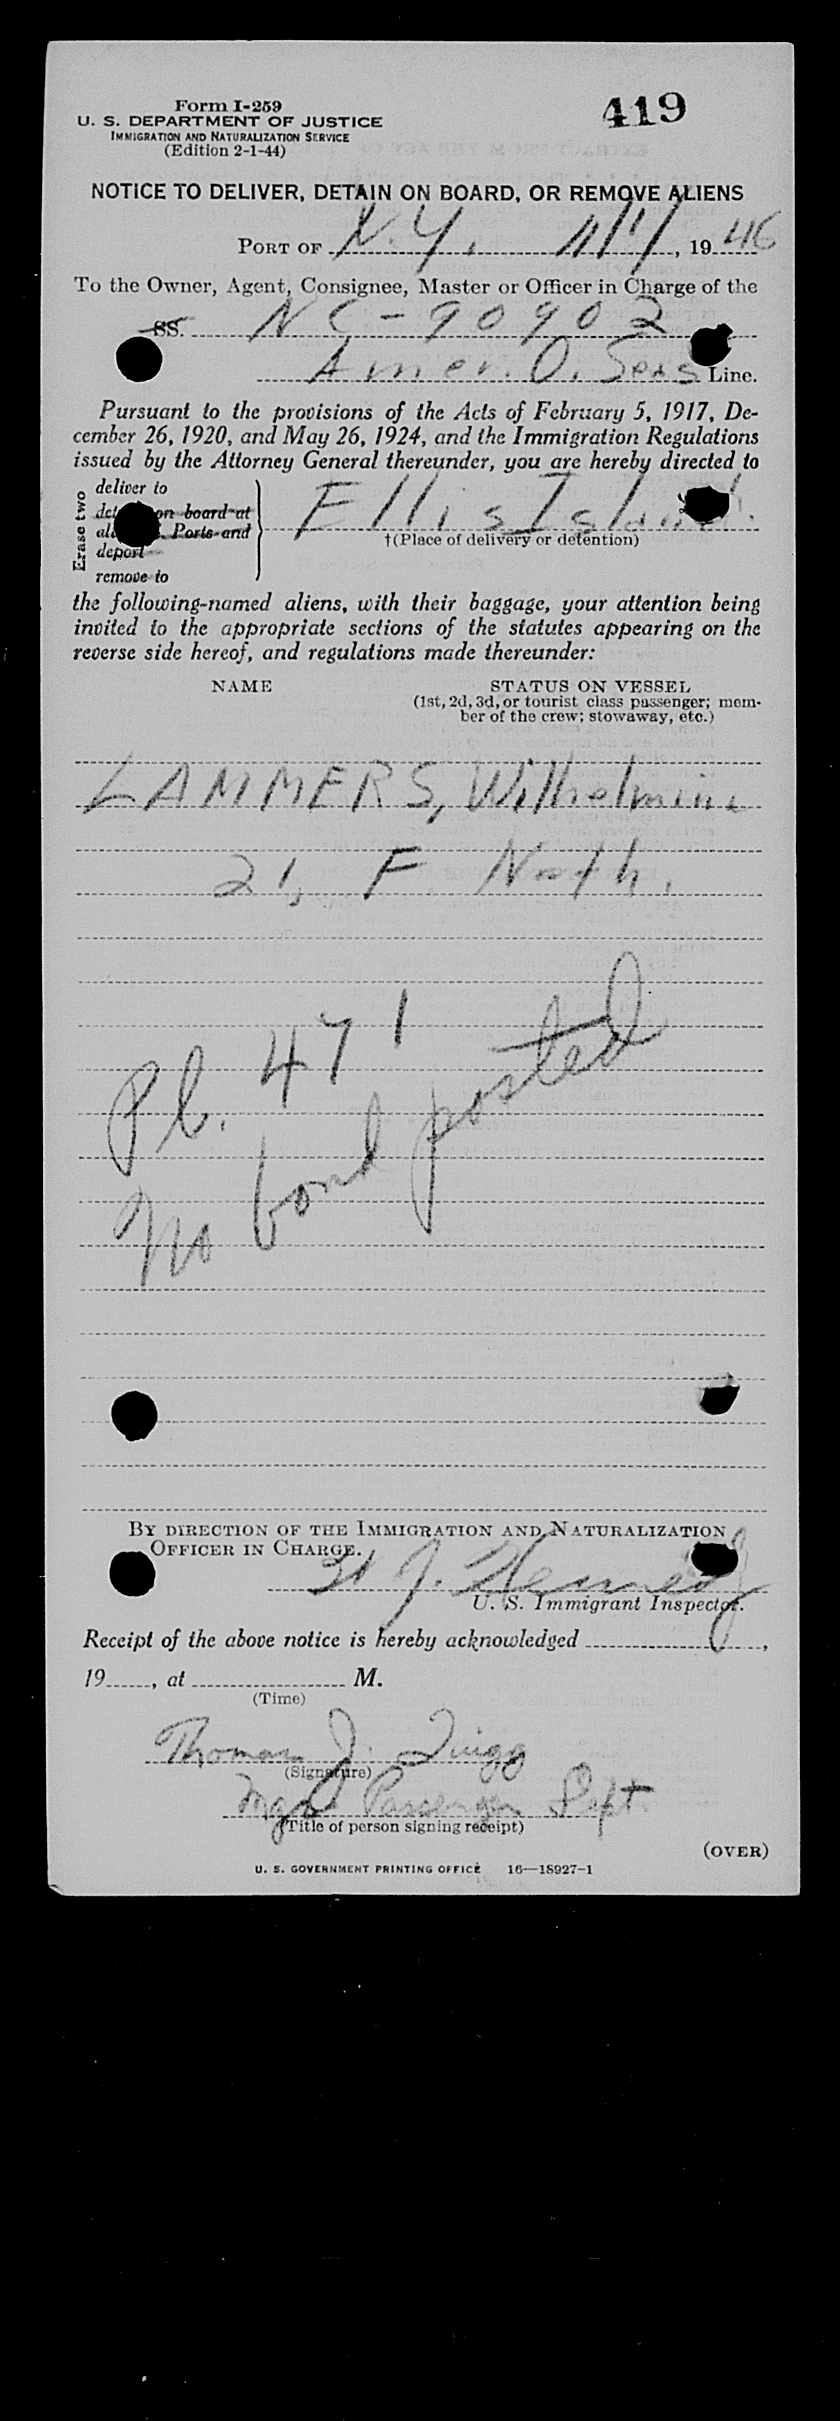 Form I-259
419
U. S. DEPARTMENT OF JUSTICE
IMMIGRATION AND NATURALIZATION SERVICE
(Edition 2-1-44)
NOTICE TO DELIVER, DETAIN ON BOARD, OR REMOVE ALIENS
PORT OF N.Y. 11/1/, 1946
To the Owner, Agent, Consignee, Master or Officer in Charge of the
SS. NC-90902
Amer. O. Seas Line.
Pursuant to the provisions of the Acts of February 5, 1917, De-
cember 26, 1920, and May 26, 1924, and the Immigration Regulations
issued by the Attorney General thereunder, you are hereby directed to
Erase two
deliver to
on board at
Ports and
deport
remove to
Ellis Island.
†(Place of delivery or detention)
the following-named aliens, with their baggage, your attention being
invited to the appropriate sections of the statutes appearing on the
reverse side hereof, and regulations made thereunder:
NAME
STATUS ON VESSEL
(1st, 2d, 3d, or tourist class passenger; mem-
ber of the crew; stowaway, etc.)
LAMMERS, Wilhelmine
21, F Neth.
Pl. 471
No bond posted
BY DIRECTION OF THE IMMIGRATION AND NATURALIZATION
OFFICER IN CHARGE.
J. Kennedy
U. S. Immigrant Inspector.
Receipt of the above notice is hereby acknowledged ,
19 , at M.
(Time)
Thomas J.
(Signature)
Mgr Passenger Dept.
(Title of person signing receipt)
(OVER)
U. S. GOVERNMENT PRINTING OFFICE 16—18927-1